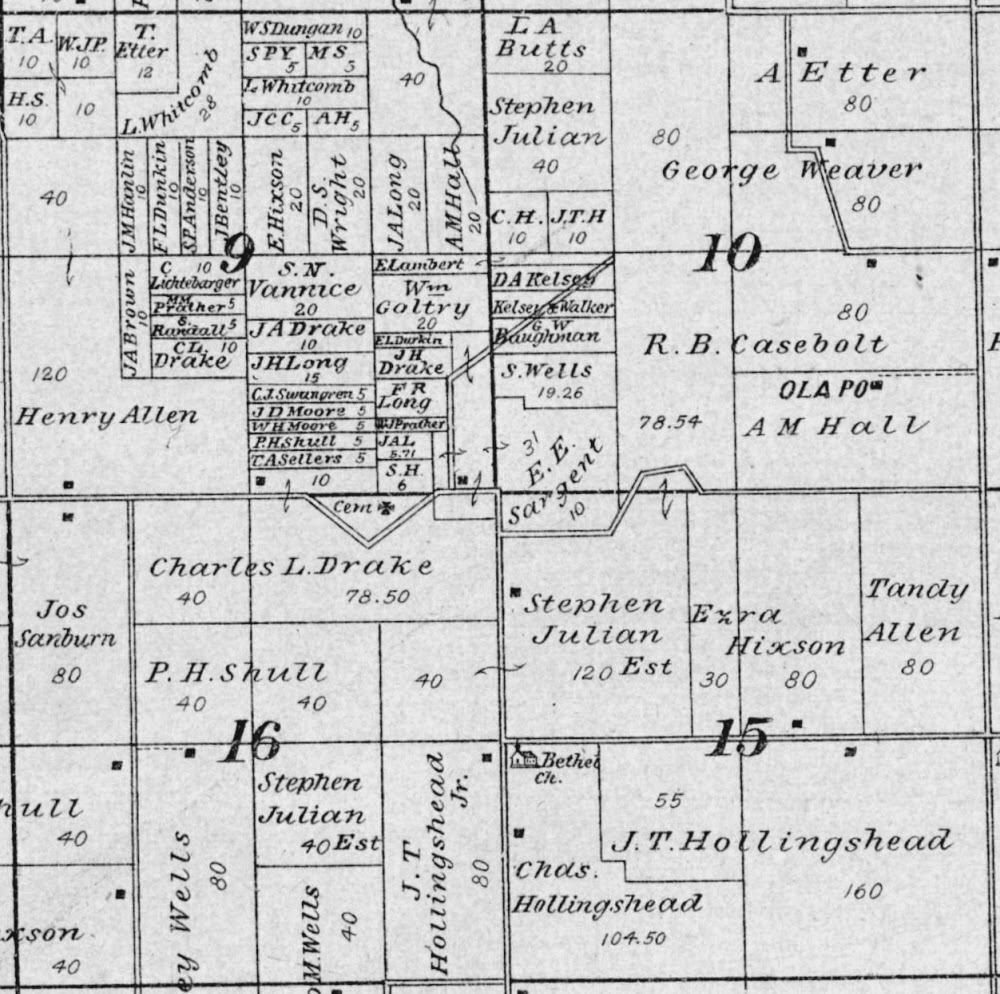 T.A.
10
W.J.P.
10
T.
Etter
12
H.S.
10
10
L.Whitcomb
28
W S Dungan 10
S P Y
5
M S
5
L.Whitcomb
10
J C C 5
A H 5
40
L A
Butts
20
Stephen
Julian
40
80
A Etter
80
George Weaver
80
40
J M Hanlin
10
F L Dunkin
10
S P. Anderson
10
J. Bentley
10
E. Hixson
20
D. S.
Wright
20
J A Long
20
A M Hall
20
C. H.
10
J. T. H
10
9
10
J A Brown
10
C 10
Lichtebarger
M M
Prather 5
S.
Randall 5
C L. 10
Drake
S. N.
Vannice
20
J A Drake
10
J H Long
15
C.J. Swangren 5
J D Moore 5
W H Moore 5
P.H Shull 5
T. A Sellers 5
10
E Lambert
Wm
Goltry
20
E L Durkin
J H
Drake
F R
Long
W J Prather
J A L
5.71
S. H.
6
D A Kelsey
Kelsey & Walker
G W
Baughman
S. Wells
19.26
80
R. B. Casebolt
OLA PO
A M Hall
78.54
120
Henry Allen
31
E. E.
Sargent
10
Cem
Charles L. Drake
40
78.50
Jos
Sanburn
80
P. H. Shull
40
40
40
Stephen
Julian
120 Est
Ezra
Hixson
30
80
Tandy
Allen
80
16
15
hull
40
ey Wells
80
Stephen
Julian
40 Est
J. T
Hollingshead
Jr.
80
Bethel
Ch.
55
J. T. Hollingshead
160
Chas.
Hollingshead
104.50
xson
40
M. Wells
40